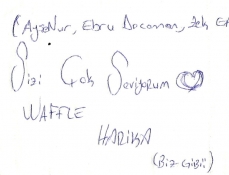 (AyşeNur, Ebru Docaman, Zek
Sizi Çok Seviyorum
WAFFLE
HARİKA
(Biz Gibi)